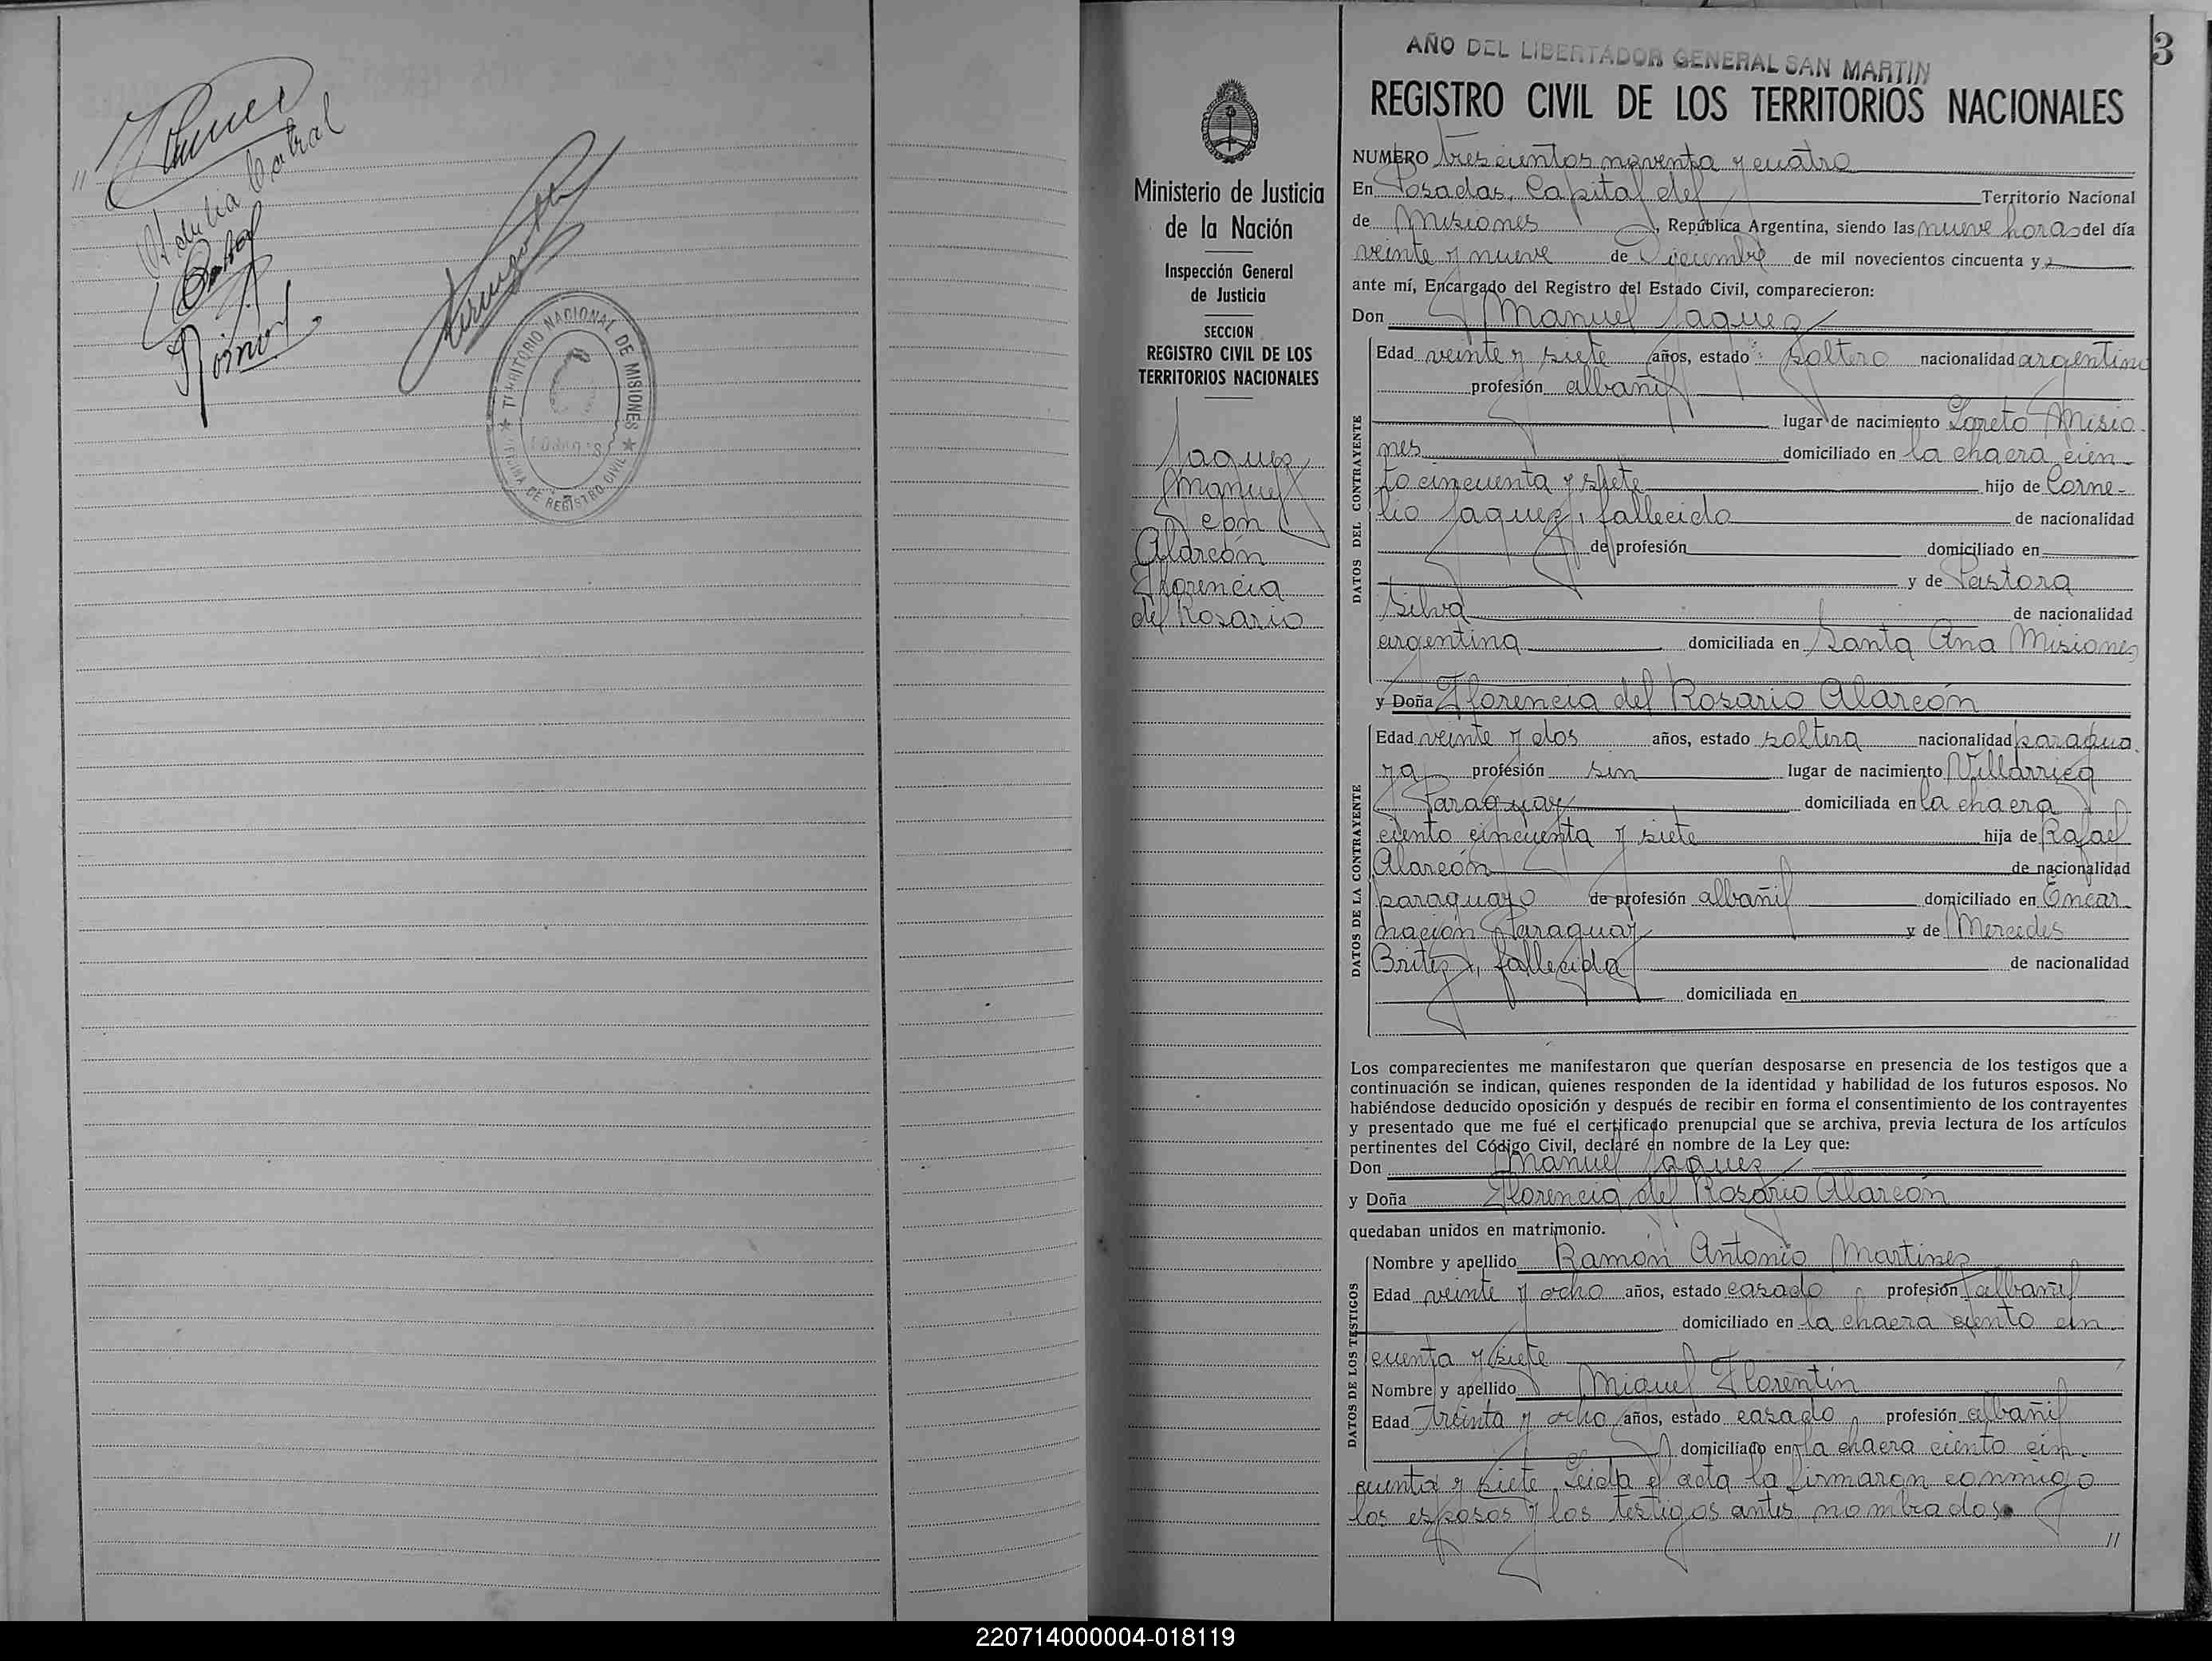 Adelia Cabral
TERRITORIO NACIONAL DE MISIONES
OFICINA DE REGISTRO CIVIL
3
AÑO DEL LIBERTADOR GENERAL SAN MARTIN
REGISTRO CIVIL DE LOS TERRITORIOS NACIONALES
Ministerio de Justicia
de la Nación
Inspección General
de Justicia
SECCION
REGISTRO CIVIL DE LOS
TERRITORIOS NACIONALES
Jaquez
Manuel
con
Alarcón
Florencia
del Rosario
NUMERO trescientos noventa y cuatro
En Posadas, Capital del Territorio Nacional
de Misiones, República Argentina, siendo las nueve horas del día
veinte y nueve de Diciembre de mil novecientos cincuenta y
ante mí, Encargado del Registro del Estado Civil, comparecieron:
Don Manuel Jaquez
DATOS DEL CONTRAYENTE
Edad veinte y siete años, estado soltero nacionalidad argentino
profesión albañil
lugar de nacimiento Loreto Misio-
nes domiciliado en la chacra cien-
to cincuenta y siete hijo de Corne-
lio Jaquez, fallecido de nacionalidad
de profesión domiciliado en
y de Pastora
Silva de nacionalidad
argentina domiciliada en Santa Ana Misiones
y Doña Florencia del Rosario Alarcón
DATOS DE LA CONTRAYENTE
Edad veinte y dos años, estado soltera nacionalidad paragua-
ya profesión sin lugar de nacimiento Villarrica
Paraguay domiciliada en la chacra
ciento cincuenta y siete hija de Rafael
Alarcón de nacionalidad
paraguayo de profesión albañil domiciliado en Encar-
nación Paraguay y de Mercedes
Britez, fallecida de nacionalidad
domiciliada en
Los comparecientes me manifestaron que querían desposarse en presencia de los testigos que a
continuación se indican, quienes responden de la identidad y habilidad de los futuros esposos. No
habiéndose deducido oposición y después de recibir en forma el consentimiento de los contrayentes
y presentado que me fué el certificado prenupcial que se archiva, previa lectura de los artículos
pertinentes del Código Civil, declaré en nombre de la Ley que:
Don Manuel Jaquez
y Doña Florencia del Rosario Alarcón
quedaban unidos en matrimonio.
DATOS DE LOS TESTIGOS
Nombre y apellido Ramón Antonio Martinez
Edad veinte y ocho años, estado casado profesión albañil
domiciliado en la chacra ciento cin-
cuenta y siete
Nombre y apellido Miguel Florentín
Edad treinta y ocho años, estado casado profesión albañil
domiciliado en la chacra ciento cin-
cuenta y siete Leida el acta la firmaron conmigo
los esposos y los testigos antes nombrados.
//
220714000004-018119